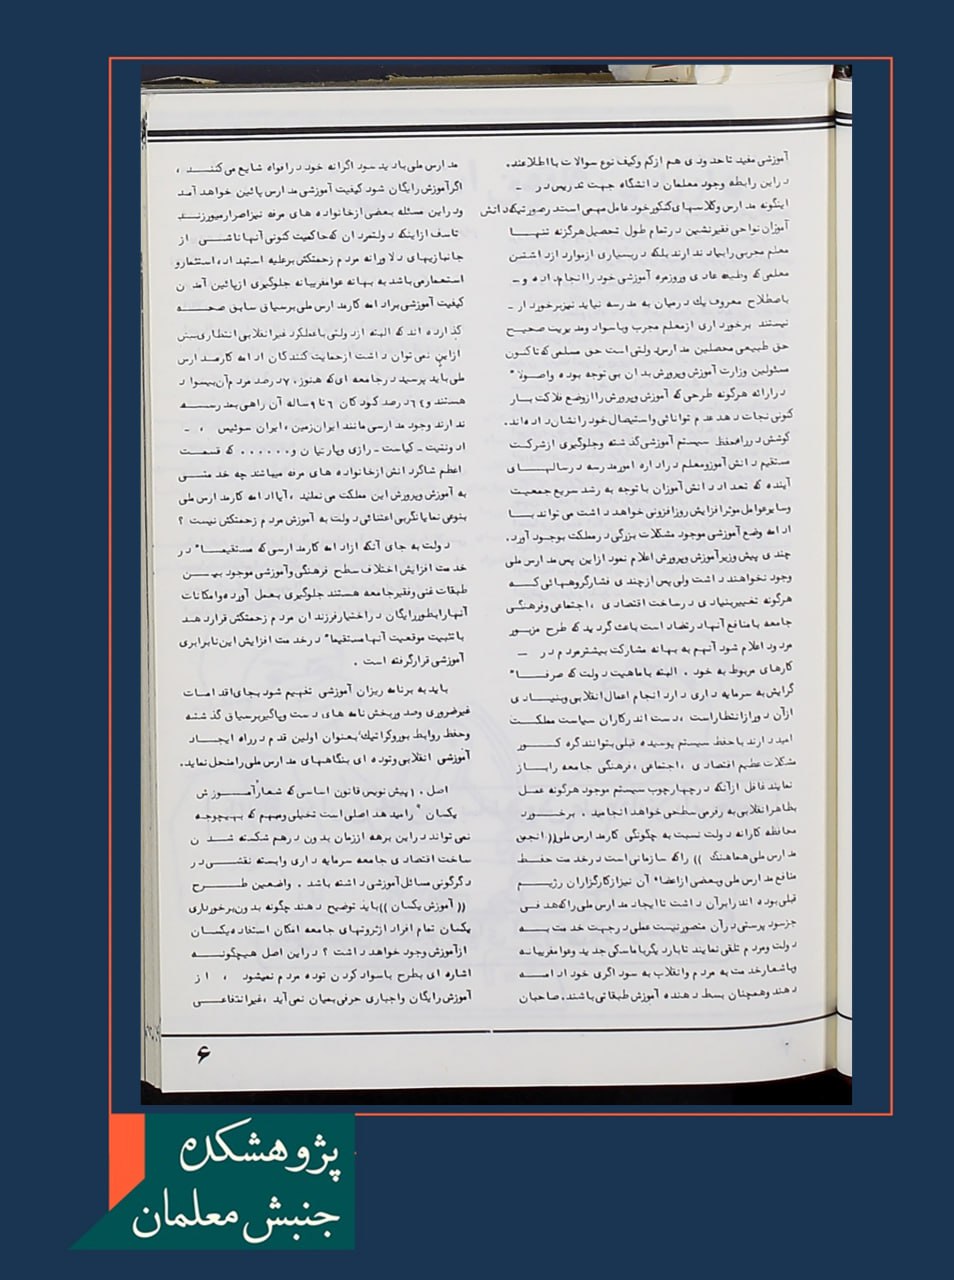 آموزشی مفید تا حدودی هم از کم وکیف نوع سوالات با اطلاعند.
در این رابطه وجود معلمان دانشگاه جهت تدریس در ـ
اینگونه مدارس وکلاسهای کنکور خود عامل مهمی است در صورتیکه دانش
آموزان نواحی فقیرنشین در تمام طول تحصیل هرگز نه تنها
معلم مجربی را بیاد ندارند بلکه در بسیاری از موارد از داشتن
معلمی که وظیفه عادی و روزمره آموزشی خود را انجام داده و ـ
باصطلاح معروف یک در میان به مدرسه نیاید نیز برخوردار ـ
نیستند برخورداری از معلم مجرب و با سواد و مدیریت صحیح
حق طبیعی محصلین مدارس دولتی است حق مسلمی که تاکنون
مسئولین وزارت آموزش وپرورش بدان بی توجه بوده و اصولا"
در ارائه هرگونه طرحی که آموزش وپرورش را از وضع فلاکت بار
کنونی نجات دهد عدم توانائی و استیصال خود را نشان داده اند.
کوشش در راه حفظ سیستم آموزشی گذشته و جلوگیری از شرکت
مستقیم دانش آموز و معلم در اداره امور مدرسه در سالهای
آینده که تعداد دانش آموزان با توجه به رشد سریع جمعیت
وسایر عوامل موثر افزایش روز افزونی خواهد داشت می تواند با
ادامه وضع آموزشی موجود مشکلات بزرگی در مملکت بوجود آورد.
چندی پیش وزیر آموزش وپرورش اعلام نمود از این پس مدارس ملی
وجود نخواهند داشت ولی پس از چندی فشار گروههائی که
هرگونه تغییر بنیادی در ساخت اقتصادی ، اجتماعی وفرهنگی
جامعه با منافع آنها در تضاد است باعث گردید که طرح مزبور
مردود اعلام شود آنهم به بهانه مشارکت بیشتر مردم در ـ
کارهای مربوط به خود . البته با ماهیت دولت که صرفا"
گرایش به سرمایه داری دارد انجام اعمال انقلابی وبنیادی
از آن دور از انتظار است ، دست اندرکاران سیاست مملکت
امیدوارند با حفظ سیستم پوسیده قبلی بتوانند گره کور
مشکلات عظیم اقتصادی ، اجتماعی ، فرهنگی جامعه را باز
نمایند غافل از آنکه در چهارچوب سیستم موجود هرگونه عمل
بظاهر انقلابی به رفرمی سطحی خواهد انجامید . برخورد
محافظه کارانه دولت نسبت به چگونگی کار مدارس ملی (( انجمن
مدارس ملی هماهنگ )) را که سازمانی است در خدمت حفظ
منافع مدارس ملی و بعضی از اعضا" آن نیز از کارگزاران رژیم
قبلی بوده اند را برآن داشت تا ایجاد مدارس ملی را که هدفی
جز سود پرستی در آن متصور نیست عملی در جهت خدمت به
دولت ومردم تلقی نمایند تا بار دیگر با ماسکی جدید وعوام فریبانه
وبا شعار خدمت به مردم و انقلاب به سوداگری خود ادامه
دهند وهمچنان بسط دهنده آموزش طبقاتی باشند. صاحبان
مدارس ملی باید سود اگرانه خود در افواه شایع می کنند ،
اگر آموزش رایگان شود کیفیت آموزشی مدارس پائین خواهد آمد
و در این مسئله بعضی از خانواده های مرفه نیز اصرار میورزند
تاسف از اینکه دولتمردان که حاکمیت کنونی آنها ناشی از
جانبازیهای دلاورانه مردم زحمتکش بر علیه استبداد ، استثمار و
استعمار می باشد به بهانه عوامفریبانه جلوگیری از پائین آمدن
کیفیت آموزشی بر ادامه کار مدارس ملی بر سیاق سابق صحه
گذارده اند که البته از دولتی با عملکرد غیر انقلابی انتظاری بیش
از این نمی توان داشت از حمایت کنندگان ادامه کار مدارس
ملی باید پرسید در جامعه ای که هنوز ۷۰ درصد مردم آن بیسواد
هستند و ۶۴ درصد کودکان ۶ تا ۹ ساله آن راهی بمدرسه
ندارند وجود مدارسی مانند ایران زمین ، ایران سوئیس ، ـ
ادونتیت ـ کیاست ـ رازی وپارتیان و...... که قسمت
اعظم شاگردانش از خانواده های مرفه میباشند چه خدمتی
به آموزش وپرورش این مملکت می نمایند ، آیا ادامه کار مدارس ملی
بنوعی نمایانگر بی اعتنائی دولت به آموزش مردم زحمتکش نیست ؟
دولت به جای آنکه از ادامه کار مدارسی که مستقیما" در
خدمت افزایش اختلاف سطح فرهنگی وآموزشی موجود بین
طبقات غنی وفقیر جامعه هستند جلوگیری بعمل آورده وامکانات
آنها را بطور رایگان در اختیار فرزندان مردم زحمتکش قرار دهد
با تثبیت موقعیت آنها مستقیما" در خدمت افزایش این نابرابری
آموزشی قرار گرفته است .
باید به برنامه ریزان آموزشی تفهیم شود بجای اقدامات
غیر ضروری وصدور بخش نامه های دست وپاگیر بر سیاق گذشته
وحفظ روابط بوروکراتیک بعنوان اولین قدم در راه ایجاد
آموزشی انقلابی وتوده ای بنگاههای مدارس ملی را منحل نماید.
اصل ۱۰ پیش نویس قانون اساسی که شعار "آموزش
یکسان " را میدهد اصلی است تخیلی ومبهم که بهیچوجه
نمی تواند در این برهه از زمان بدون درهم شکسته شدن
ساخت اقتصادی جامعه سرمایه داری وابسته نقشی در
دگرگونی مسائل آموزشی داشته باشد . واضعین طرح
(( آموزش یکسان )) باید توضیح دهند چگونه بدون برخورداری
یکسان تمام افراد از ثروتهای جامعه امکان استفاده یکسان
از آموزش وجود خواهد داشت ؟ در این اصل هیچگونه
اشاره ای بطرح باسواد کردن توده مردم نمیشود ، از
آموزش رایگان واجباری حرفی بمیان نمی آید ، غیر انتفاعی
۶
پژوهشکده
جنبش معلمان